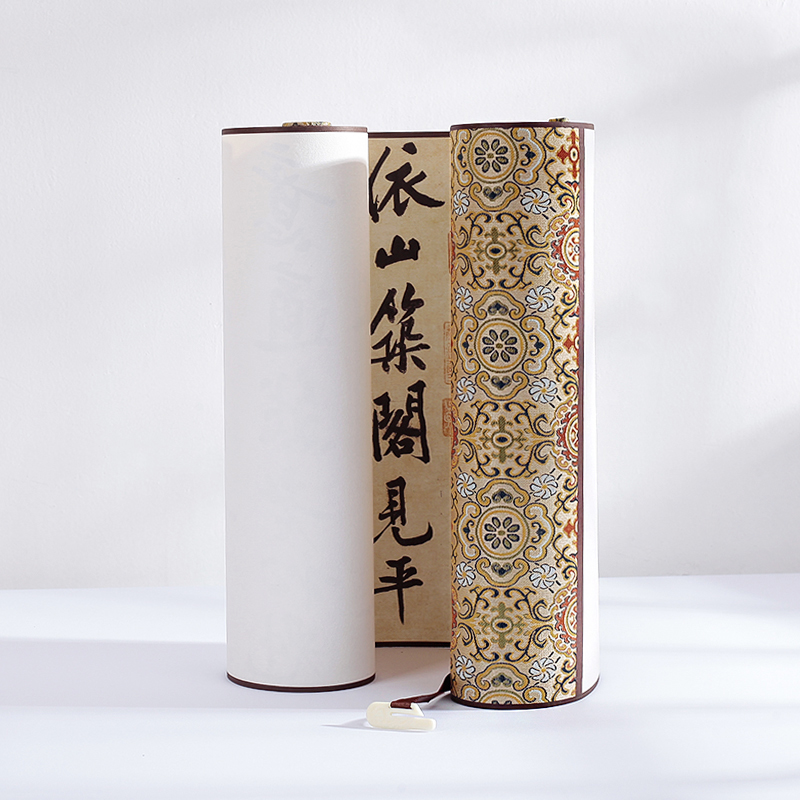 依山築閣見平